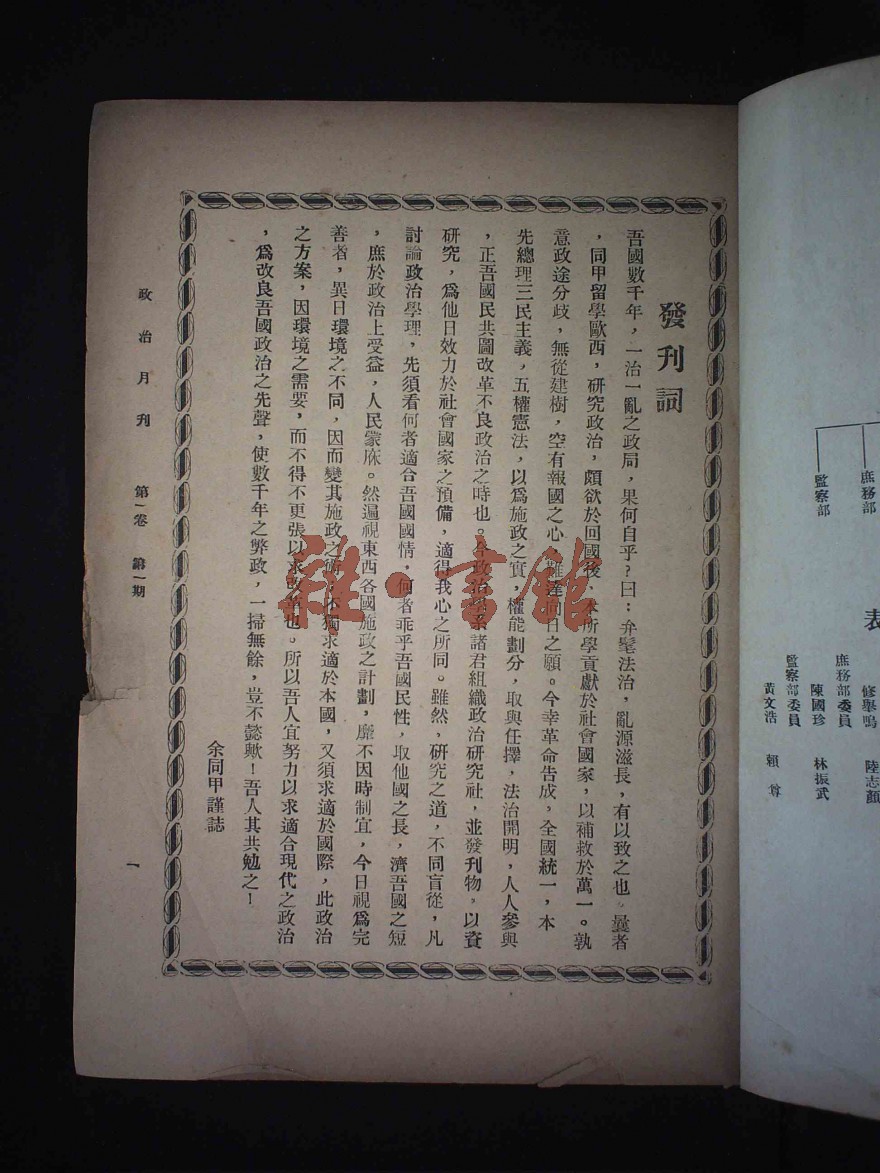 發刊詞
吾國數千年，一治一亂之政局，果何自乎？曰：弁髦法治，亂源滋長，有以致之也。曩者
，同甲留學歐西，研究政治，頗欲於回國後、本所學貢獻於社會國家，以補救於萬一。孰
意政途分歧，無從建樹，空有報國之心，難達向日之願。今幸革命告成，全國統一，本
先總理三民主義，五權憲法，以爲施政之實，權能劃分，取與任擇，法治開明，人人參與
，正吾國民共圖改革不良政治之時也。今政治學系諸君組織政治研究社，並發刊物，以資
研究，爲他日效力於社會國家之預備，適得我心之所同。雖然，研究之道，不同盲從，凡
討論政治學理，先須看何者適合吾國國情，何者乖乎吾國民性，取他國之長，濟吾國之短
，庶於政治上受益，人民蒙庥。然遍視東西各國施政之計劃，靡不因時制宜，今日視爲完
善者，異日環境之不同，因而變其施政之術，不獨求適於本國，又須求適於國際，此政治
之方案，因環境之需要，而不得不更張以求改革也。所以吾人宜努力以求適合現代之政治
，爲改良吾國政治之先聲，使數千年之弊政，一掃無餘，豈不懿歟！吾人其共勉之！
余同甲謹誌
政治月刊 第一卷 第一期
一
雜·書館
表
庶務部
監察部
庶務部委員
修舉鳴 陸志顏
陳國珍 林振武
監察部委員
黃文浩 賴尊